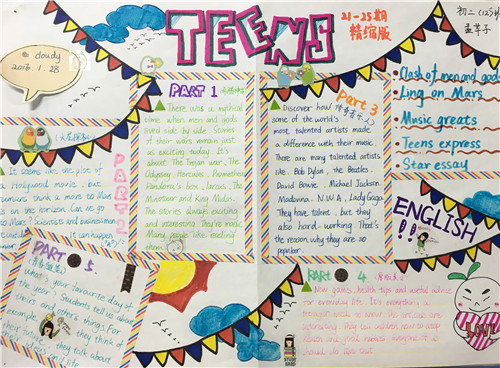 TEENS
21-25期
精缩版
初二(12)班
cloudy
2016.1.28
Clash of men and gods
Ling on Mars
Music greats
Teens express
Star essay
PART 1
There was a mythical
time when men and gods
lived side by side. Stories
of their wars remain just
as exciting today. It's
about The Trojan war, The
Odyssey, Hercules, Prometheus
Pandora's box, Icarus, The
Minotaur and King Midas.
The stories always exciting
and interesting. They're magic.
Many people like reading
them.
PART 2
It seems like the plot of
Hollywood movie, but
humans think a move to Mars
is on the horizon. Can we go
to Mars? Scientists and businessmen
It can happen
Part 3
Discover how
some of the world's
most talented artists made
a difference with their music.
There are many talented artists
like, Bob Dylan, the Beatles,
David Bowie, Michael Jackson,
Madonna, N.W.A, Lady Gaga.
They have talent, but they
also hard-working. That's
the reason why they are so
popular.
ENGLISH
!!
Part 4.
New games, health tips and useful advice
for everyday life. It's everything a
need to know. The articles are
interesting. They can
and good
PART 5.
What's your favourite day of
the year? Students tell us about
theirs and others things. For
example, they think of
their future, they talk about
and life
STUDY
HARD
LOVE